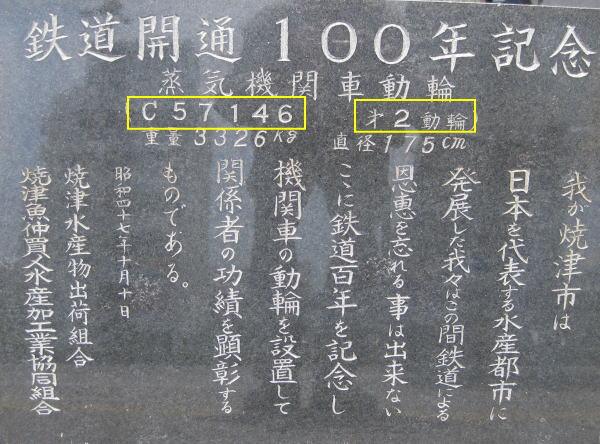 鉄道開通100年記念
蒸気機関車動輪
C57146 才2動輪
重量3326kg 直径175cm
我が焼津市は
日本を代表する水産都市に
発展した我々はこの間鉄道による
恩恵を忘れる事は出来ない
ここに鉄道百年を記念し
機関車の動輪を設置して
関係者の功績を顕彰する
ものである。
昭和四十七年十月十日
焼津水産物出荷組合
焼津魚仲買人水産加工業協同組合